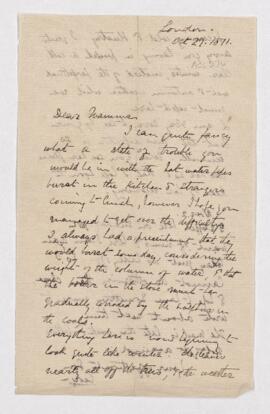 London.
Oct 29. 1871.
Dear Mamma
I can quite fancy
what a state of trouble you
would be in with the hot water pipes
burst in the kitchen & strangers
coming to lunch, however I hope you
managed to get over the difficulty.
I always had a presentiment that they
would burst some day, considering the
weight of the column of water, & that
the boiler in the stove must be
gradually corroded by the
in the
Everything here is now beginning to
look quite like winter the leaves
nearly all off the trees, & the weather